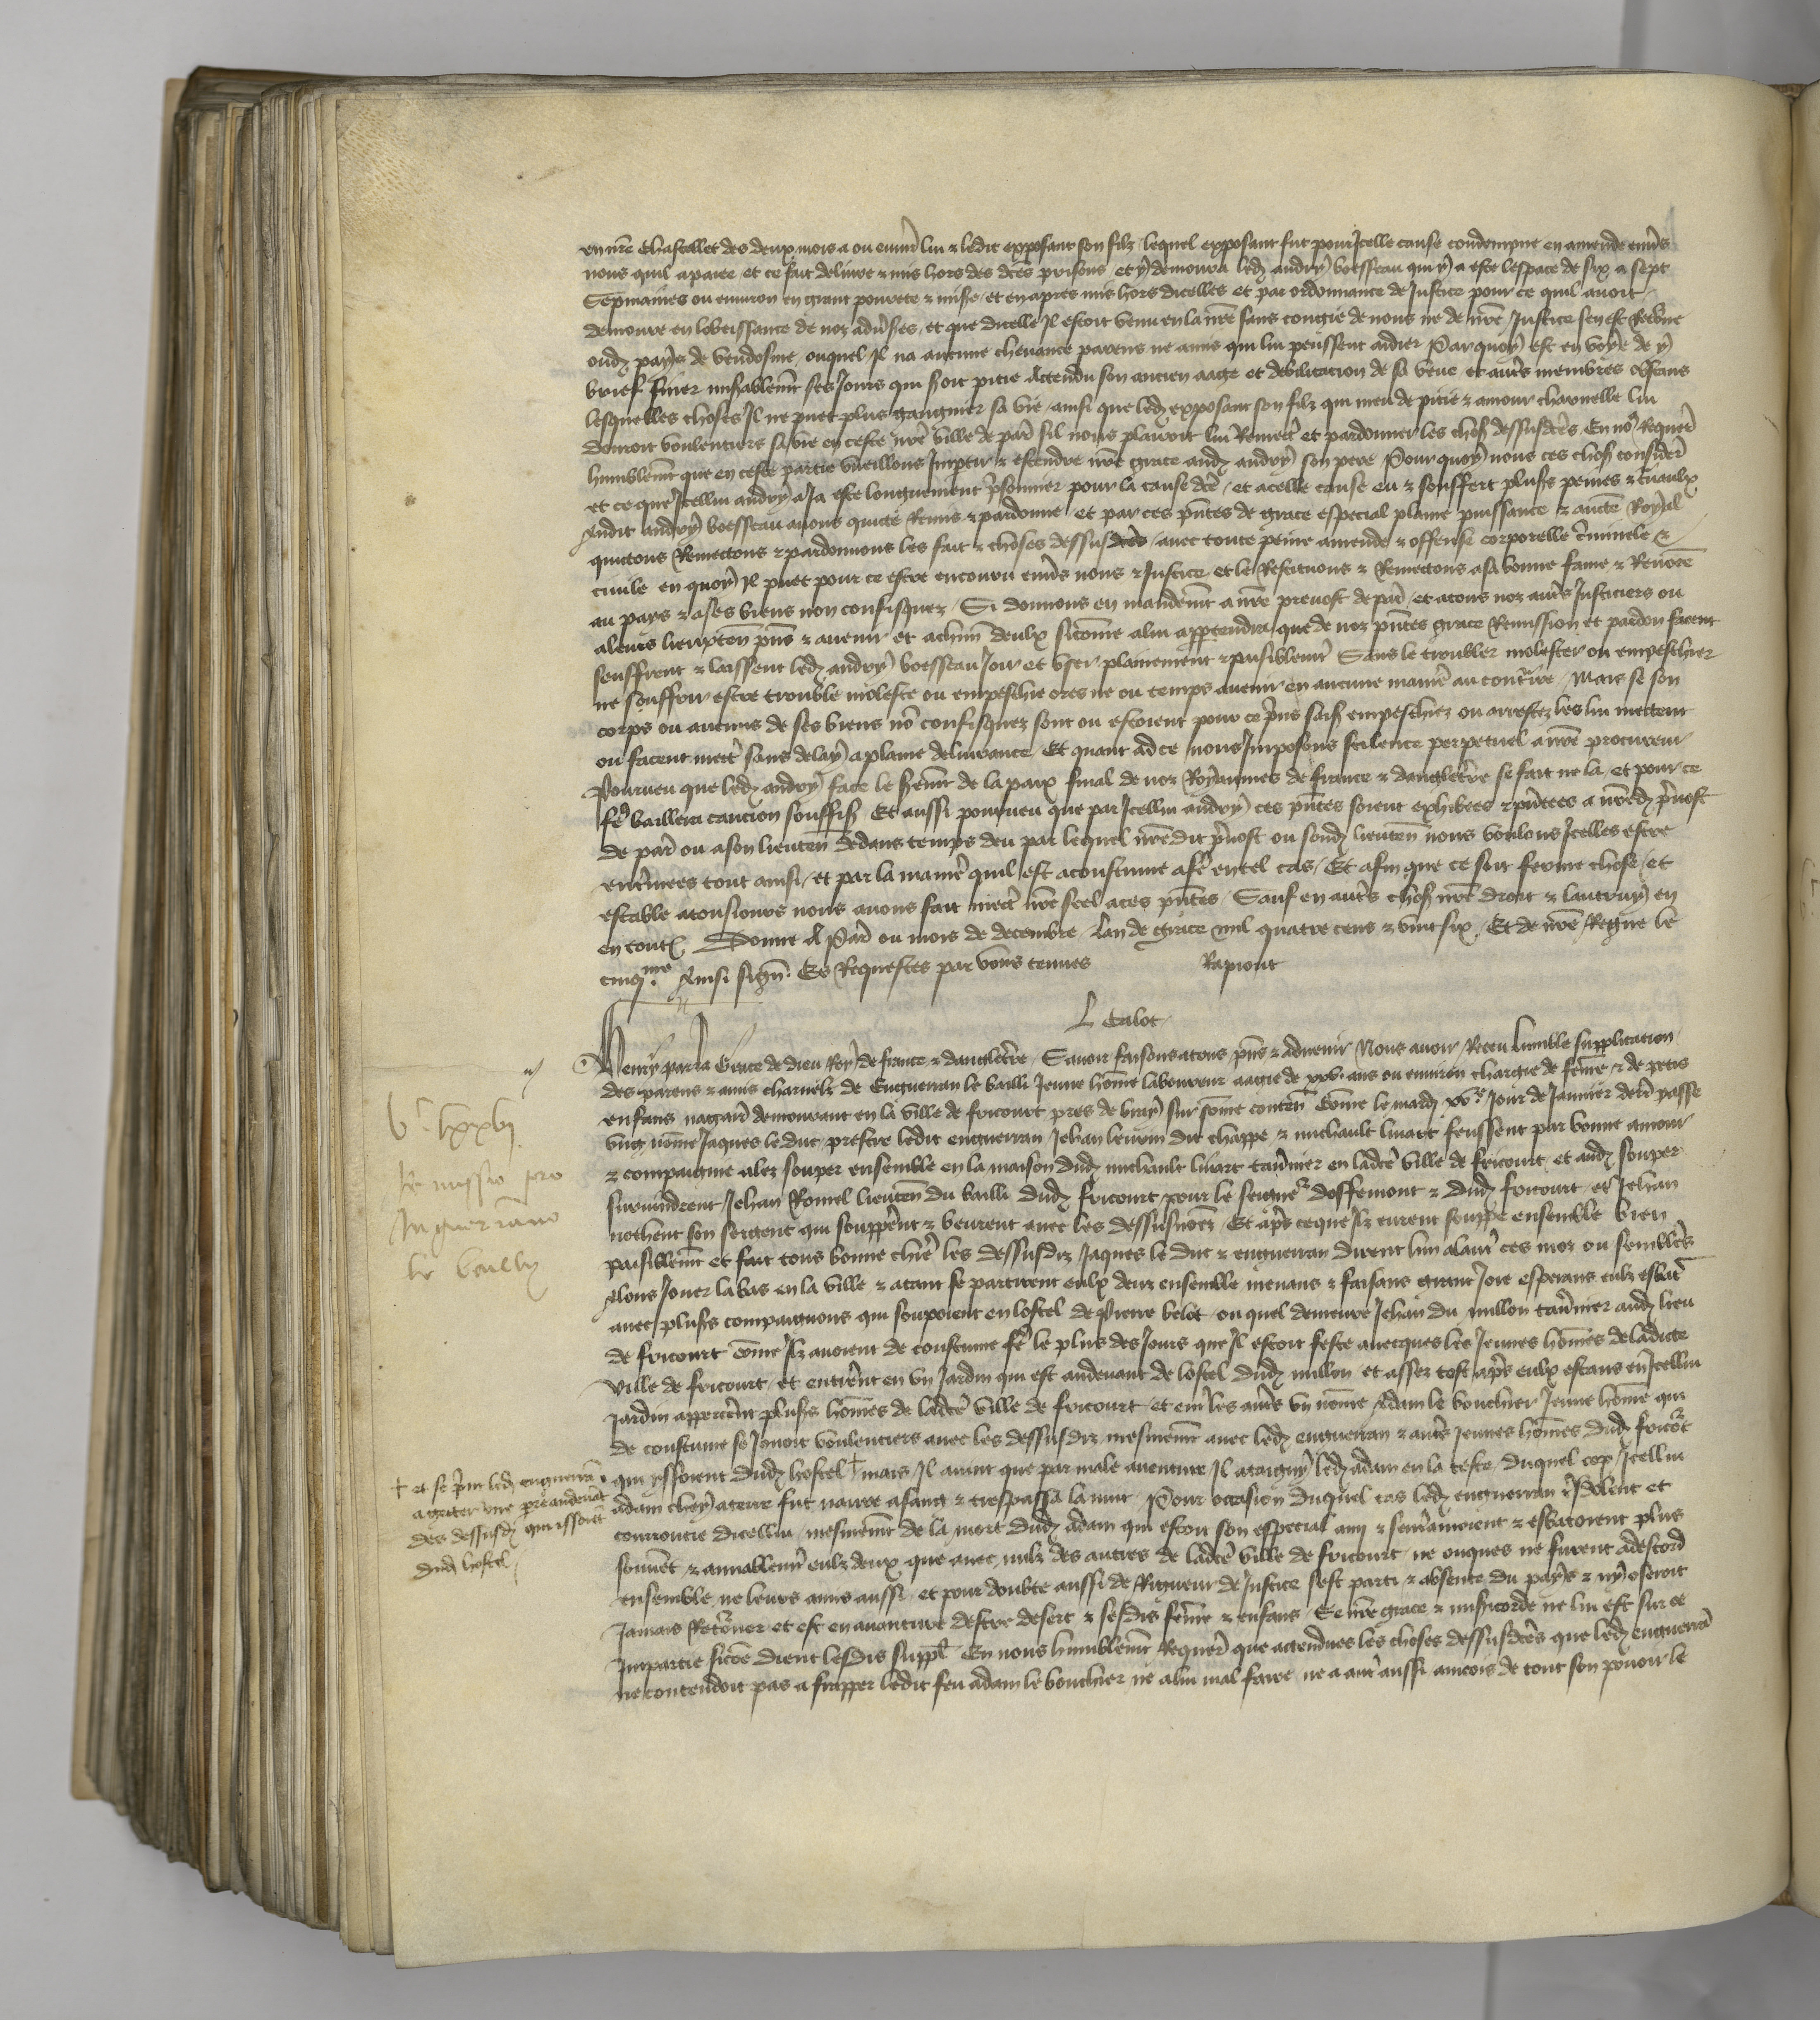 en nre Chastellet des deux mois a ou envirō lui & ledit exposant son filz lequel exposant fut pour Icelle cause condempne en amende envs
nous quil a paiee et ce fait delivre & mis hors des dces prisons et y demoura ledz andry boesseau qui y a este lespace de six a sept
Sepmaines ou environ en grant povrete & mise et en apres mis hors dicelles et par ordonnance de Justice pour ce quil avoit
demoure en lobeissance de noz advses et que dicelle Il estoit venu en la nre sans congie de nous ne de nre Justice sen est
oudz pays de vendosme ouquel Il na aucune chevance parens ne amis qui lui peussent aidier Par quoy est en voye de y
brief finer misablemt ses Jours qui soit pitie Attendu son ancien aage et debilitacion de sa veue et autres membres obstans
lesquelles choses Il ne puet plus gaignier sa vie ainsi que ledz exposant son filz qui meu de pitie & amour charnelle lui
donroit voulentiers sa vie en ceste nre ville de par sil nous plaisoit lui Remectre et pardonner les chos dessusdces En no Requert
humblemt que en ceste partie vueillons Impartir & estendre nre grace audz andry son pere Pour quoy nous ces chos consider
et ce que Icellui andry a Ja este longuement psonnier pour la cause dce et a celle cause eu & souffert pluss peines & travaulx
Audit andry boesseau avons quicte Remis & pardonne et par ces pntes de grace especial plaine puissance & aucte Royal
quictons Remectons & pardonnons les fait & choses dessusdces avec toute peine amende & offense corporelle criminele &
civile en quoy Il puet pour ce estre encouru envs nous & Justice et le Restituons & Remectons a sa bonne fame & Renōee
au pays & a ses biens non confisquez Si donnons en mandemt a nre prevost de par et a tous noz autres Justiciers ou
a leurs lieuxten pns & avenir et a chūn deulx sicōme a lui appartendra que de noz pntes grace Remission et pardon facent
seuffrent & laissent ledz andry boesseau Joir et user plainement & paisiblemt Sans le troubler molester ou empeschier
ne souffrir estre trouble moleste ou empeschie ores ne ou temps avenir en aucune manre au contrre Mais se son
corps ou aucuns de ses biens nō confisquez sont ou estoient pour ce pns saisz empeschiez ou arrestez les lui mectent
ou facent mectre sans delay a plaine delivrance Et quant ad ce nous Imposons scilence perpetuel a nre procureur
Pourveu que ledz andry face le sermt de la paix final de noz Royaumes de france & dangletere se fait ne la et pour ce
fe baillera caucion souffiss Et aussi pourveu que par Icellui andry ces pntes soient exhibees & pntees a nredz pvost
de par ou a son lieuten dedans temps deu par lequel nredit pvost ou sondz lieuten nous voulons Icelles estre
entinees tout ainsi et par la manre quil est acoustume a fe en tel cas Et afin que ce soit ferme chose et
estable a tousiours nous avons fait mectre nre seel a ces pntes Sauf en autres chos nre droit & lautruy en
en toutes Donne A Par ou mois de decembre Lan de grace mil quatre cens & vint six Et de nre Regne le
cinqme Ainsi signe Es Requestes par vous tenues Rapiout
L Calot
Henry par la Grace de dieu Roy de france & dangletre Savoir faisons a tous pns & advenir Nous avoir Receu lumble supplicacion
des parens & amis charnelz de Enguerran le bailli Jeune hōme laboureur aagie de xxv ans ou environ chargie de feme & de petis
enfans nagaire demourant en la ville de fricourt pres de bray sur some conten Cōme le mardz xve Jour de Janvier derr passe
ung nōme Jaques le duc prestre ledit enguerran Jehan levin dit chappe & michault livart feussent par bonne amour
& compaignie alez souper ensemble en la maison dudz michault livart tavnier en ladce ville de fricourt et audz souper
survindrent Jehan Romel lieuten du bailli dudz fricourt pour le seigner doffemont & dudz fricourt et Jehan
nothent son sergent qui soupperent & beurent avec les dessusnōez Et aps ce que Ilz eurent souppe ensemble bien
paisiblemt et fait tous bonne chie les dessusdiz Jaques le duc & enguerran dirent lun a lautre ces moz ou semblēs
Alons Jouer la bas en la ville & atant se partirent eulx deux ensemble menans & faisans grant Joie esperans eulx esbatre
avec pluss compaignons qui soupoient en lostel de Pierre belot ou quel demeure Jehan du millon tavnier audz lieu
de fricourt cōme Ilz avoient de coustume fe le plus des Jours que Il estoit feste avecques les Jeunes hōmes de ladicte
ville de fricourt et entrerent en un Jardin qui est audevant de lostel dudz millon et assez tost aps eulx estans en Icellui
Jardin apperceurent pluss hōmes de ladce ville de fricourt et ent les autres un nōme Adam le bouchier Jeune hōme qui
de coustume se Jouoit voulentiers avec les dessusdiz mesmemt avec ledz enguerran & autres Jeunes hōmes dudz fricort
qui yssoient dudz hostel + mais Il avint que par male aventure Il ataigny ledz adam en la teste duquel cop Icellui
adam chey a terre fut navre a sang & trespassa la nuit Pour occasion duquel cas ledz enguerran dolent et
courroucie dicellui mesmemt de la mort dudz adam qui estoit son especial amy & sentramoient & esbatoient plus
souvet & amiablemt eulx deux que avec nulz des autres de ladce ville de fricourt ne onques ne furent a descord
ensemble ne leurs amis aussi et pour doubte aussi de Rigueur de Justice sest parti & absente du pays & ny oseroit
Jamais Retorner et est en aventure destre desert & sesdis feme & enfans Se nre grace & misicorde ne lui est sur ce
Impartie sicōe dient lesdis suppl En nous humblemt Requer que actendues les choses dessusdces que ledz enguerra
ne contendoit pas a frapper ledit feu adam le bouchier ne a lui mal faire ne a autre aussi aincois de tout son povoir le
vc lxxvj
Remissio pro
Inguerrano
le bailly
+ et se print ledz enguerra
a getter une pre audevat
des dessusdz qui issoiet
dudz hostel